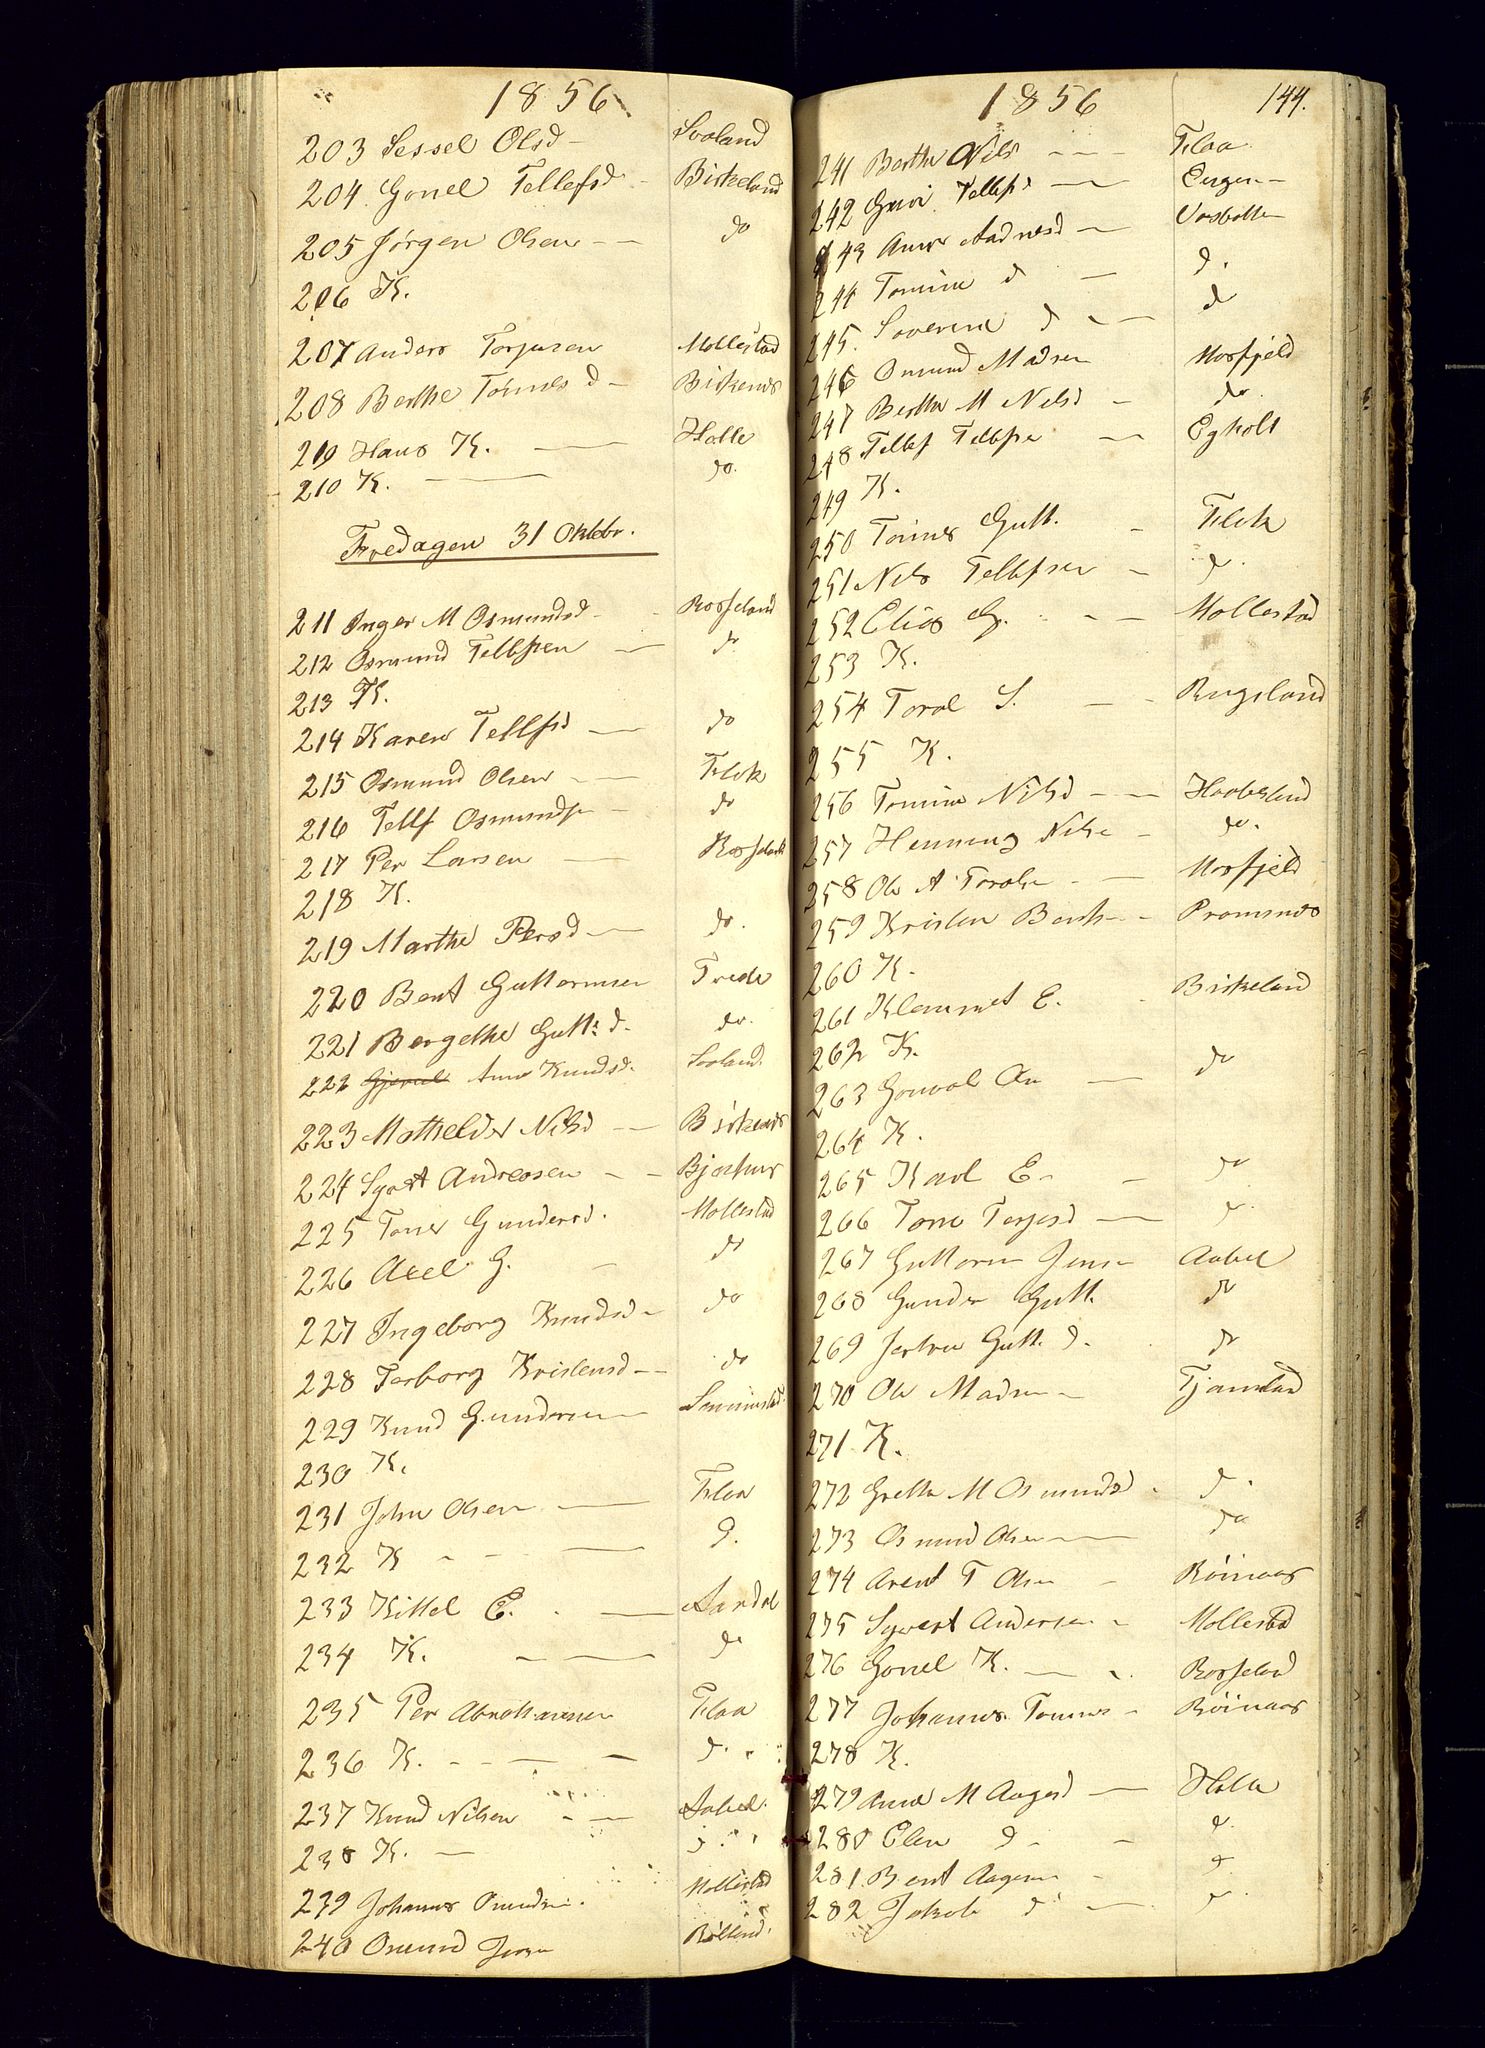 1856
203 Sessel Olsd - Svaland
204. Gonel Tellefsd - Birkeland
205 Jørgen Olsen - - do
206 K.
207 Anders Torjusen Mollestad
208 Berthe Tønnesd - Birkenes
209 Hans K. - Holle
210 K. - do.
Fredagen 31 Oktbr.
211 Inger M Osmundsd - Rosseland
212 Osmund Tellefsen - do
213 K.
214 Karen Tellfsd - do
215 Osmund Olsen - - Flak
216 Tellf Osmunds - do
217 Per Larsen -
218 K.
219 Marthe Persd - do.
220 Bent Guttormsen Trede
221 Bergethe Gutt. d. do.
222 Ane Knudsd. Svaland.
223 Mathelde Nilsd - - Birkenes
224 Syvert Andreasen - -
225 Tone Gundersd. Mollestad
226 Axel G. - do
227 Ingeborg Knudsd - do
228 Torborg Kristensd - - do
229 Knud Gundersen
230 K.
231 John Olsen - Flaa
232 K - - - d.
233 Kittel E. . -
234 K. - - do
235 Per Abrahamsen Flaa
236 K. - - - - d. . .
237 Knud Nilsen - - Aabel.
238 K. - d . . .
239 Johannes Omunds. Mollestad
240 Omund
1856 144.
241 Berthe Nils - - - Flaa
242 Guri Tellfs -
243 Anne Aadnesd -
244 Tomine d - d.
245. Severine d - - d
246 Omund Madsen Mosfjeld
247 Berthe M Nilsd - do.
248 Tellef Tellefsen - Egholt
249 K.
250 Tønnes Gutt. - Flak
251 Nils Tellefsen - d.
252 Elias G. . - - Mollestad
253 K.
254 Torol S. - - Rugsland
255 K.
256 Tomine Nilsd - - Haabesland
257 Henning Nilse - do.
258 Ole A Torols - - Mosfjeld
259 Kristen Bents - -
260 K.
261 Klemmet E. - Birkeland
262 K.
263 Gonvol An - do
264 K.
265 Karl E - - do
266 Tone Terjesd - d.
267 Guttorm Jens - Aabel
268 Gunder Gutt. do
269 Gutt. d. . do
270 Ole Madsen -
271 K.
272 Grethe M Osmundsd . d .
273 Osmund Olsen - do
274 Arent T Olsen - Røinaas
275 Syvert Andersen - Mollestad
276 Gonel K. - . Rosseland
277 Johannes Tønnes - Røinaas
278 K.
279 Anne M Aagesd - Holle
280 Elen d - - d.
281. Bent Aagesen - d
282 Jakob d - d